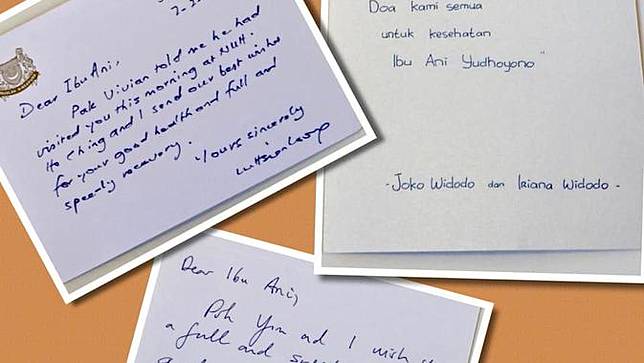 Dear Ibu Ani,
Pak Vivian told me he had
visited you this morning at NUH.
Ho Ching and I send our best wishes
for your good health and full and
speedy recovery.
Yours sincerely
Doa kami semua
untuk kesehatan
Ibu Ani Yudhoyono"
- Joko Widodo dan Iriana Widodo -
Dear Ibu Ani,
and I wish
a full and